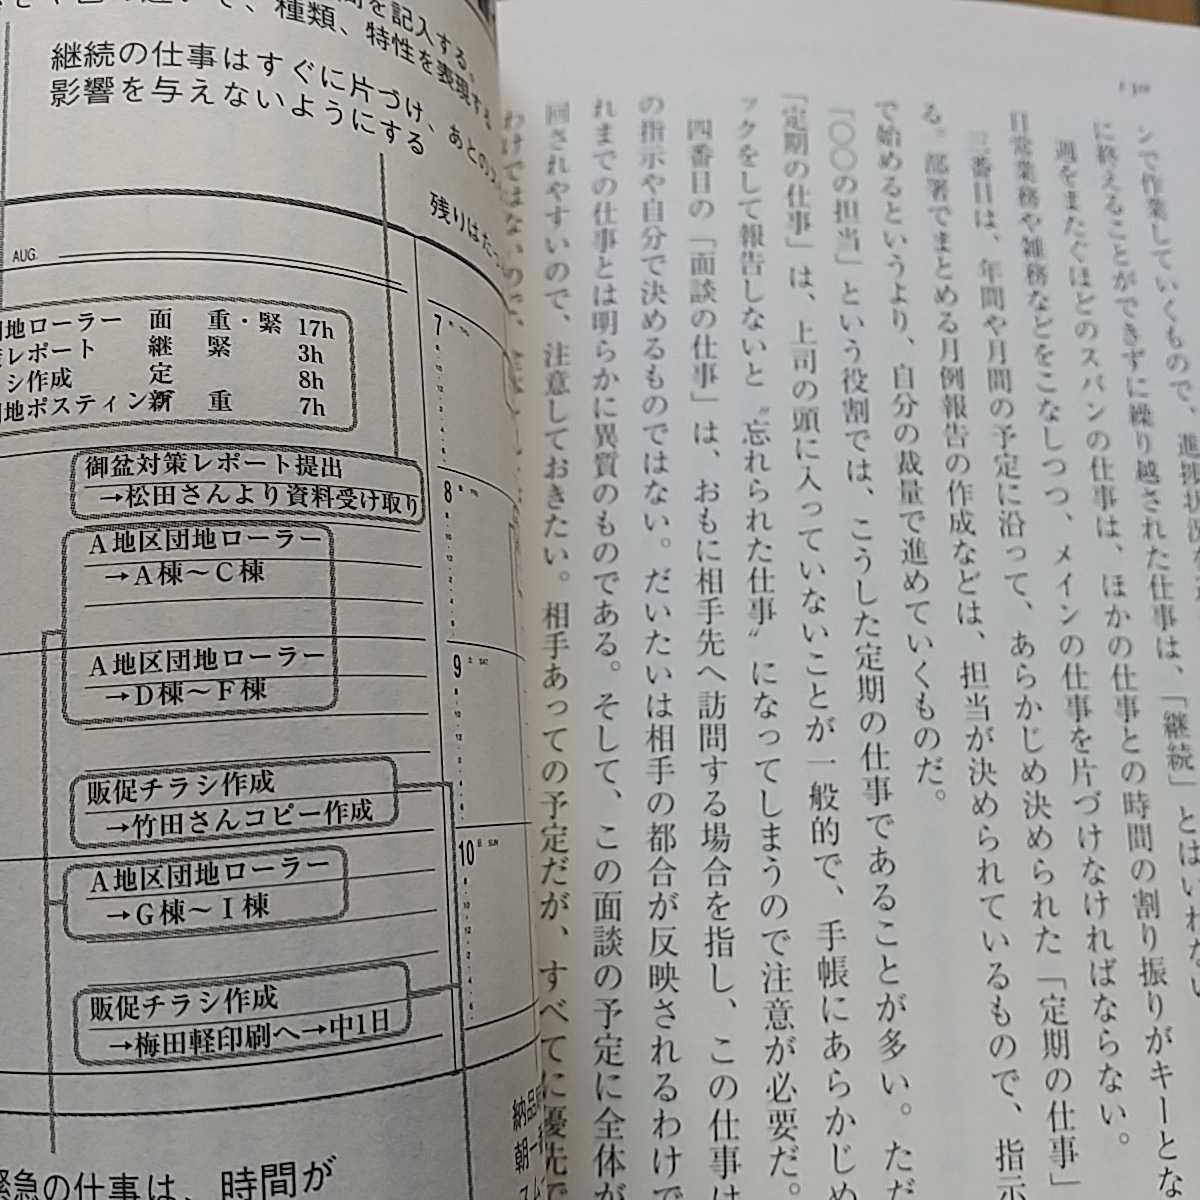 を記入する。
種類、特性を表現する
継続の仕事はすぐに片づけ、あとの
影響を与えないようにする
残りはた
AUG.
地ローラー 面 重・緊 17h
レポート 継 緊 3h
シ作成 定 8h
地ポスティン 新 重 7h
御盆対策レポート提出
→松田さんより資料受け取り
A地区団地ローラー
→A棟〜C棟
A地区団地ローラー
→D棟〜F棟
販促チラシ作成
→竹田さんコピー作成
A地区団地ローラー
→G棟〜I棟
販促チラシ作成
→梅田軽印刷へ→中1日
7
8
9 土 SAT
10 日 SUN
納品
朝一
緊急の仕事は、時間が
ンで作業していくもので、進捗状況
に終えることができずに繰り越された仕事は、「継続」とはいえない
週をまたぐほどのスパンの仕事は、ほかの仕事との時間の割り振りがキーとな
日常業務や雑務などをこなしつつ、メインの仕事を片づけなければならない。
三番目は、年間や月間の予定に沿って、あらかじめ決められた「定期の仕事」
る。部署でまとめる月例報告の作成などは、担当が決められているもので、指示
で始めるというより、自分の裁量で進めていくものだ。
「〇〇の担当」という役割では、こうした定期の仕事であることが多い。ただ
「定期の仕事」は、上司の頭に入っていないことが一般的で、手帳にあらかじめ
ックをして報告しないと〝忘れられた仕事〟になってしまうので注意が必要だ。
四番目の「面談の仕事」は、おもに相手先へ訪問する場合を指し、この仕事は
の指示や自分で決めるものではない。だいたいは相手の都合が反映されるわけで
れまでの仕事とは明らかに異質のものである。そして、この面談の予定に全体が
回されやすいので、注意しておきたい。相手あっての予定だが、すべてに優先で
わけではないので、